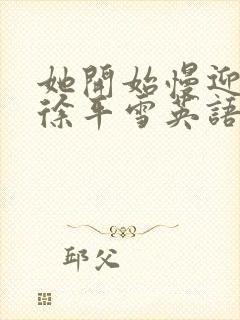 她開始慢迎
徐平雪英語
邱父